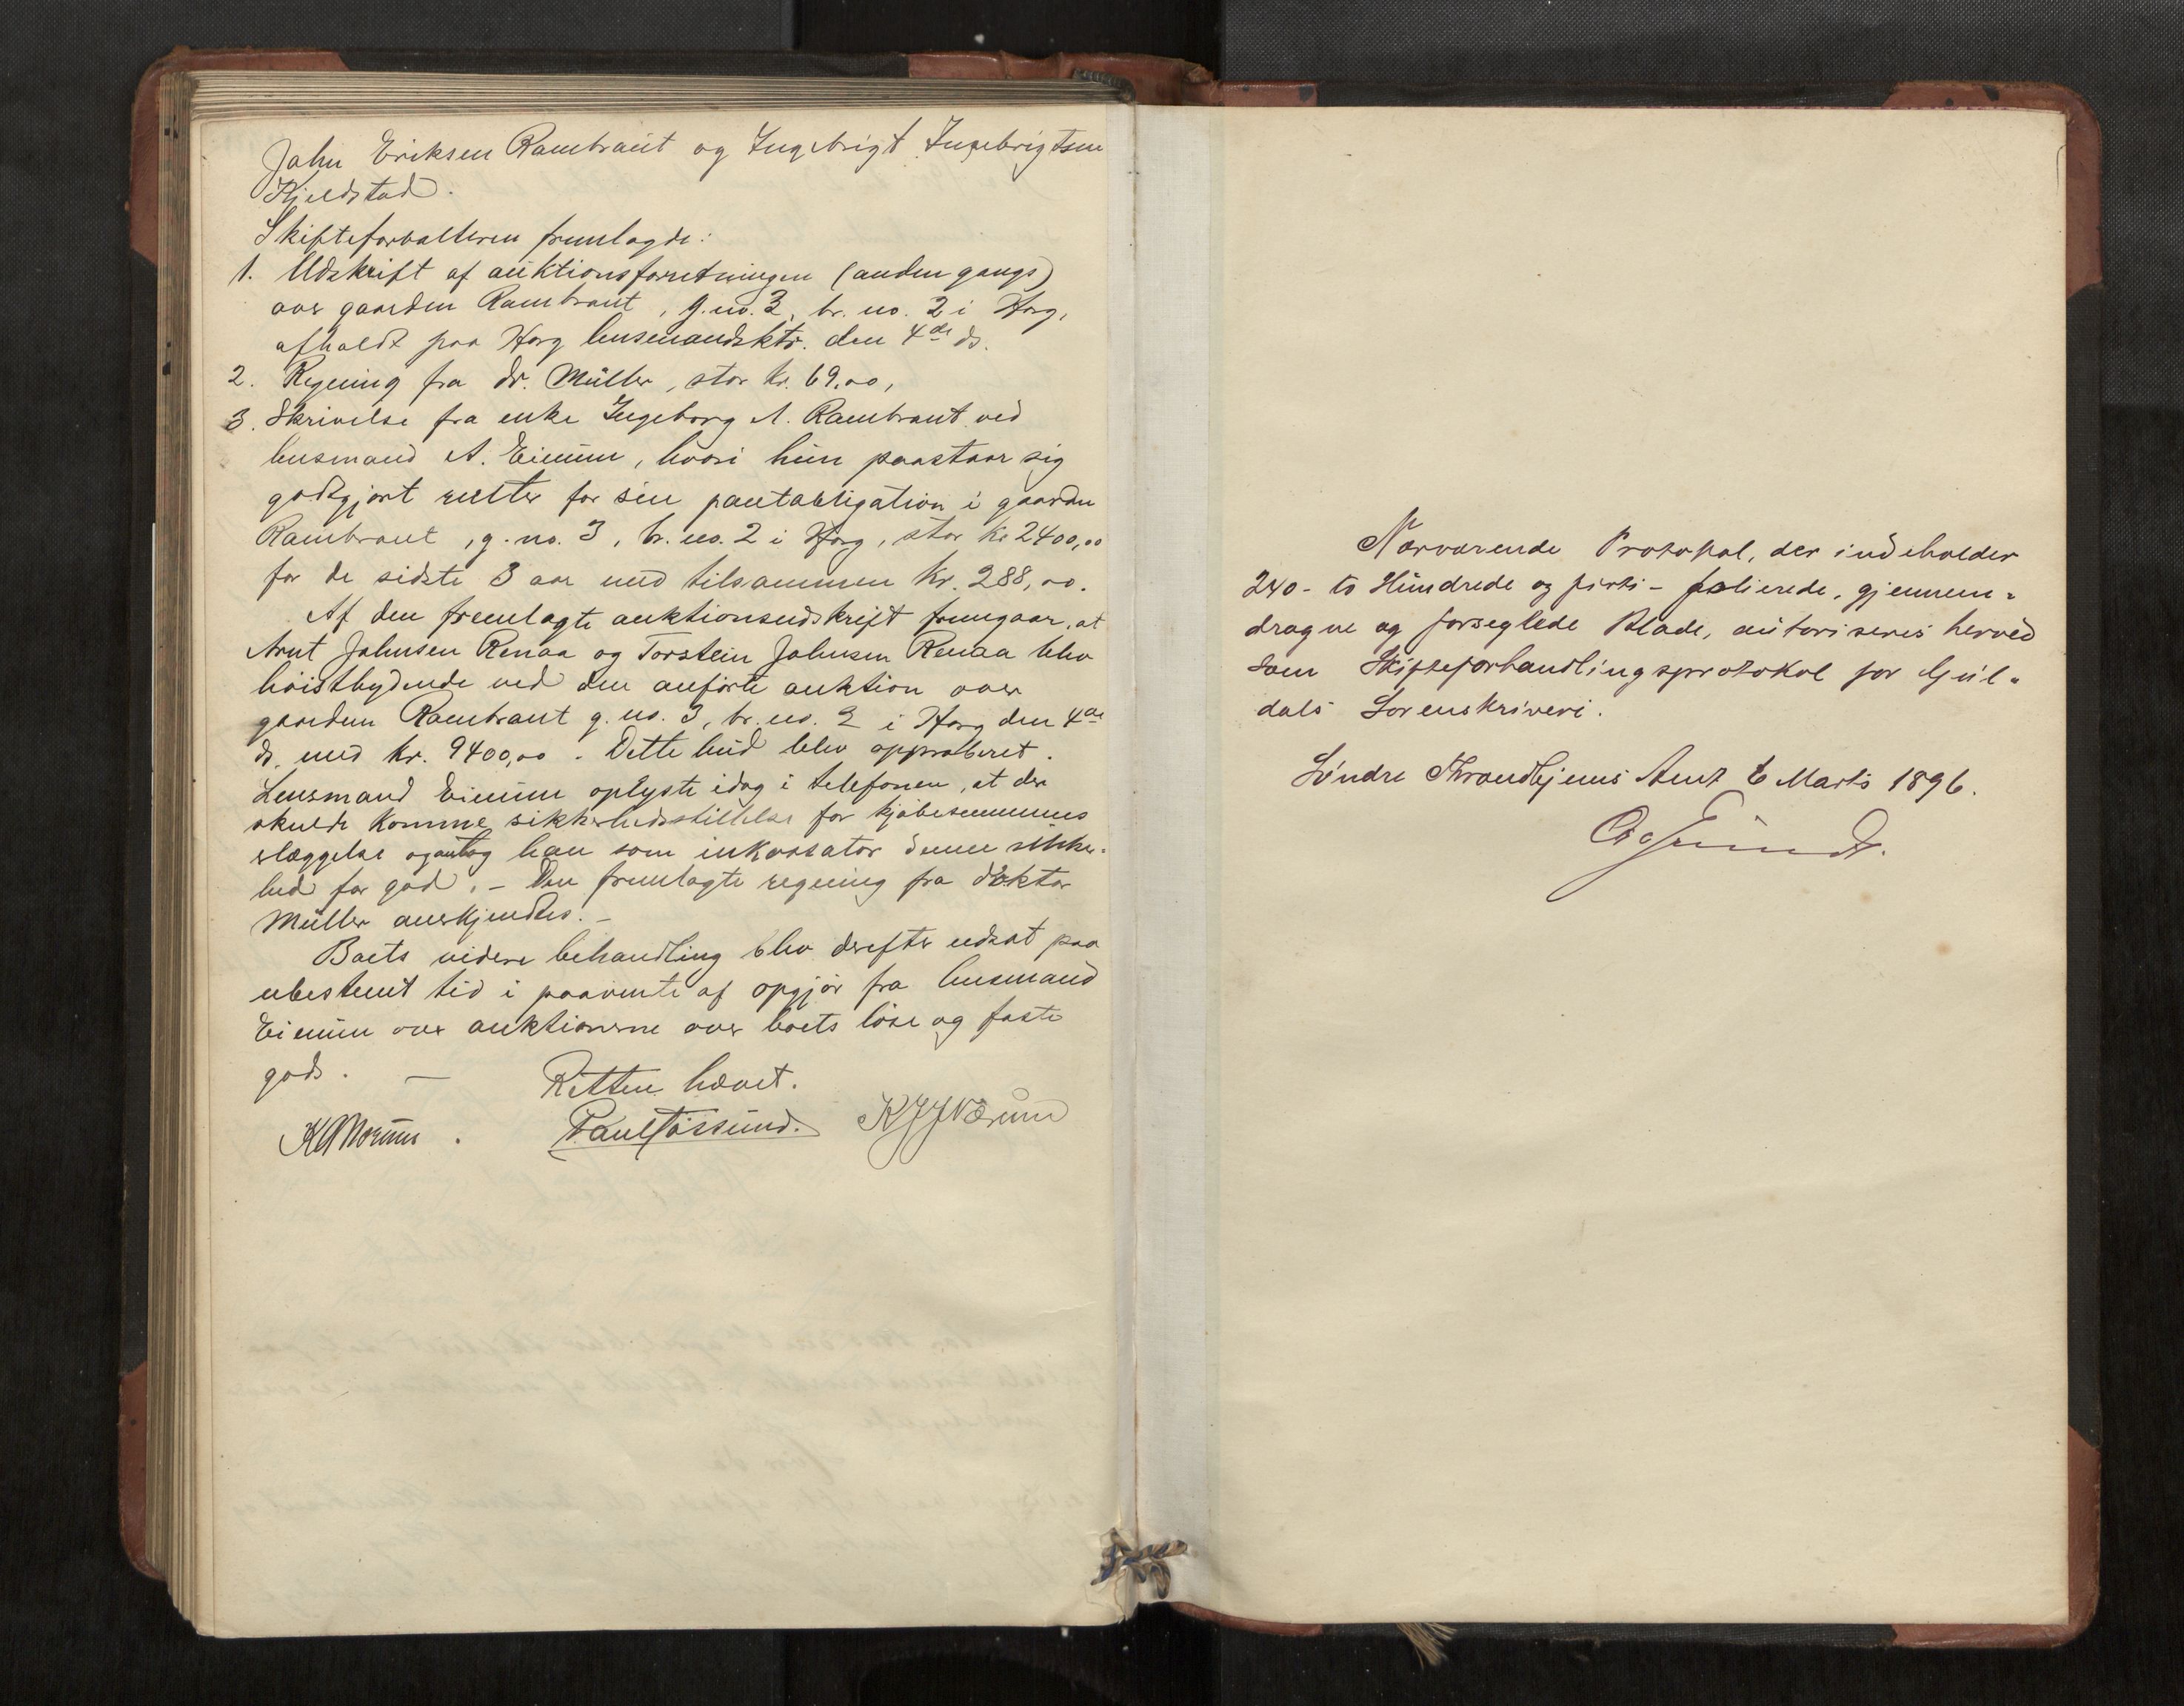 John Eriksen Rambraut og Ingebrigt Ingebrigtsen
Kjeldstad.
Skifteforvalteren fremlagde:
1. Udskrift af auktionsforretningen (anden gangs)
over gaarden Rambraut, g. no. 3, br. no. 2 i Horg,
afholdt paa Horg lensmandsktr. den 4de ds.
2. Regning fra dr. Müller, stor kr. 69,00,
3. Skrivelse fra enke Ingeborg A. Rambraut ved
lensmand A. Eimum, hvori hun paastaar sig
godtgjort renter for sin pantobligation i gaarden
Rambraut, g. no. 3, br. no. 2 i Horg, stor kr 2400,00
for de sidste 3 aar med tilsammen kr. 288,00.
Af den fremlagte auktionsudskrift fremgaar, at
Arnt Johnsen Renaa og Torstein Johnsen Renaa blev
höistbydende ved den anförte auktion over
gaarden Rambraut g. no. 3, br. no. 2 i Horg den 4de
ds. med kr. 9400,00. Dette bud blev approberet.
Lensmand Eimum oplyste idag i telefonen, at der
skulde komme sikkerhedsstillelse for kjöbesummens
erlæggelse og antog han som inkassator denne sikker-
hed for god. - Den fremlagte regning fra doktor
Müller anerkjendtes. -
Boets videre behandling blev derefter udsat paa
ubestemt tid i paavente af opgjör fra lensmand
Eimum over auktionerne over boets löse og faste
gods. —
Retten hævet.
Paul Fossum.
Nærværende Protokol, der indeholder
240 - to Hundrede og firti - folierede, gjennem-
dragne og forseglede Blade, autoriseres herved
som Skifteforhandlingsprotokol for Gul-
dals Sorenskriveri.
Söndre Throndhjems Amt 6 Marts 1896.